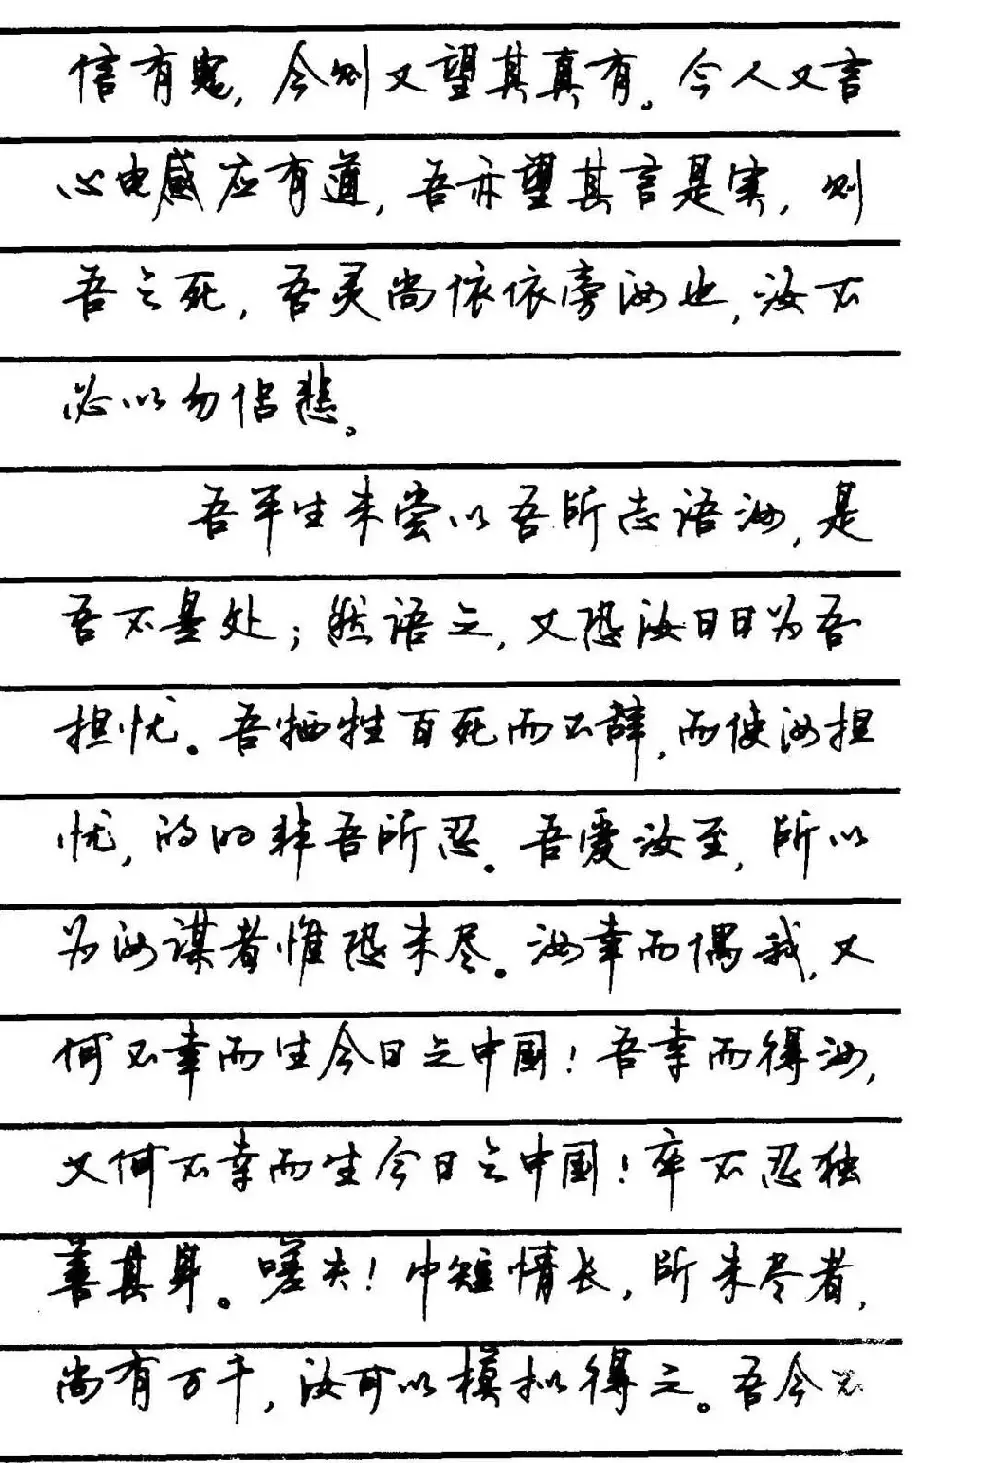 信有鬼，今则又望其真有。今人又言
心电感应有道，吾亦望其言是实，则
吾之死，吾灵尚依依傍汝也，汝不
必以勿侣悲。
吾平生未尝以吾所志语汝，是
吾不是处；然语之，又恐汝日日为吾
担忧。吾牺牲百死而不辞，而使汝担
忧，的的非吾所忍。吾爱汝至，所以
为汝谋者惟恐未尽。汝幸而偶我，又
何不幸而生今日之中国！吾幸而得汝，
又何不幸而生今日之中国！卒不忍独
善其身。嗟夫！巾短情长，所未尽者，
尚有万千，汝可以模拟得之。吾今不